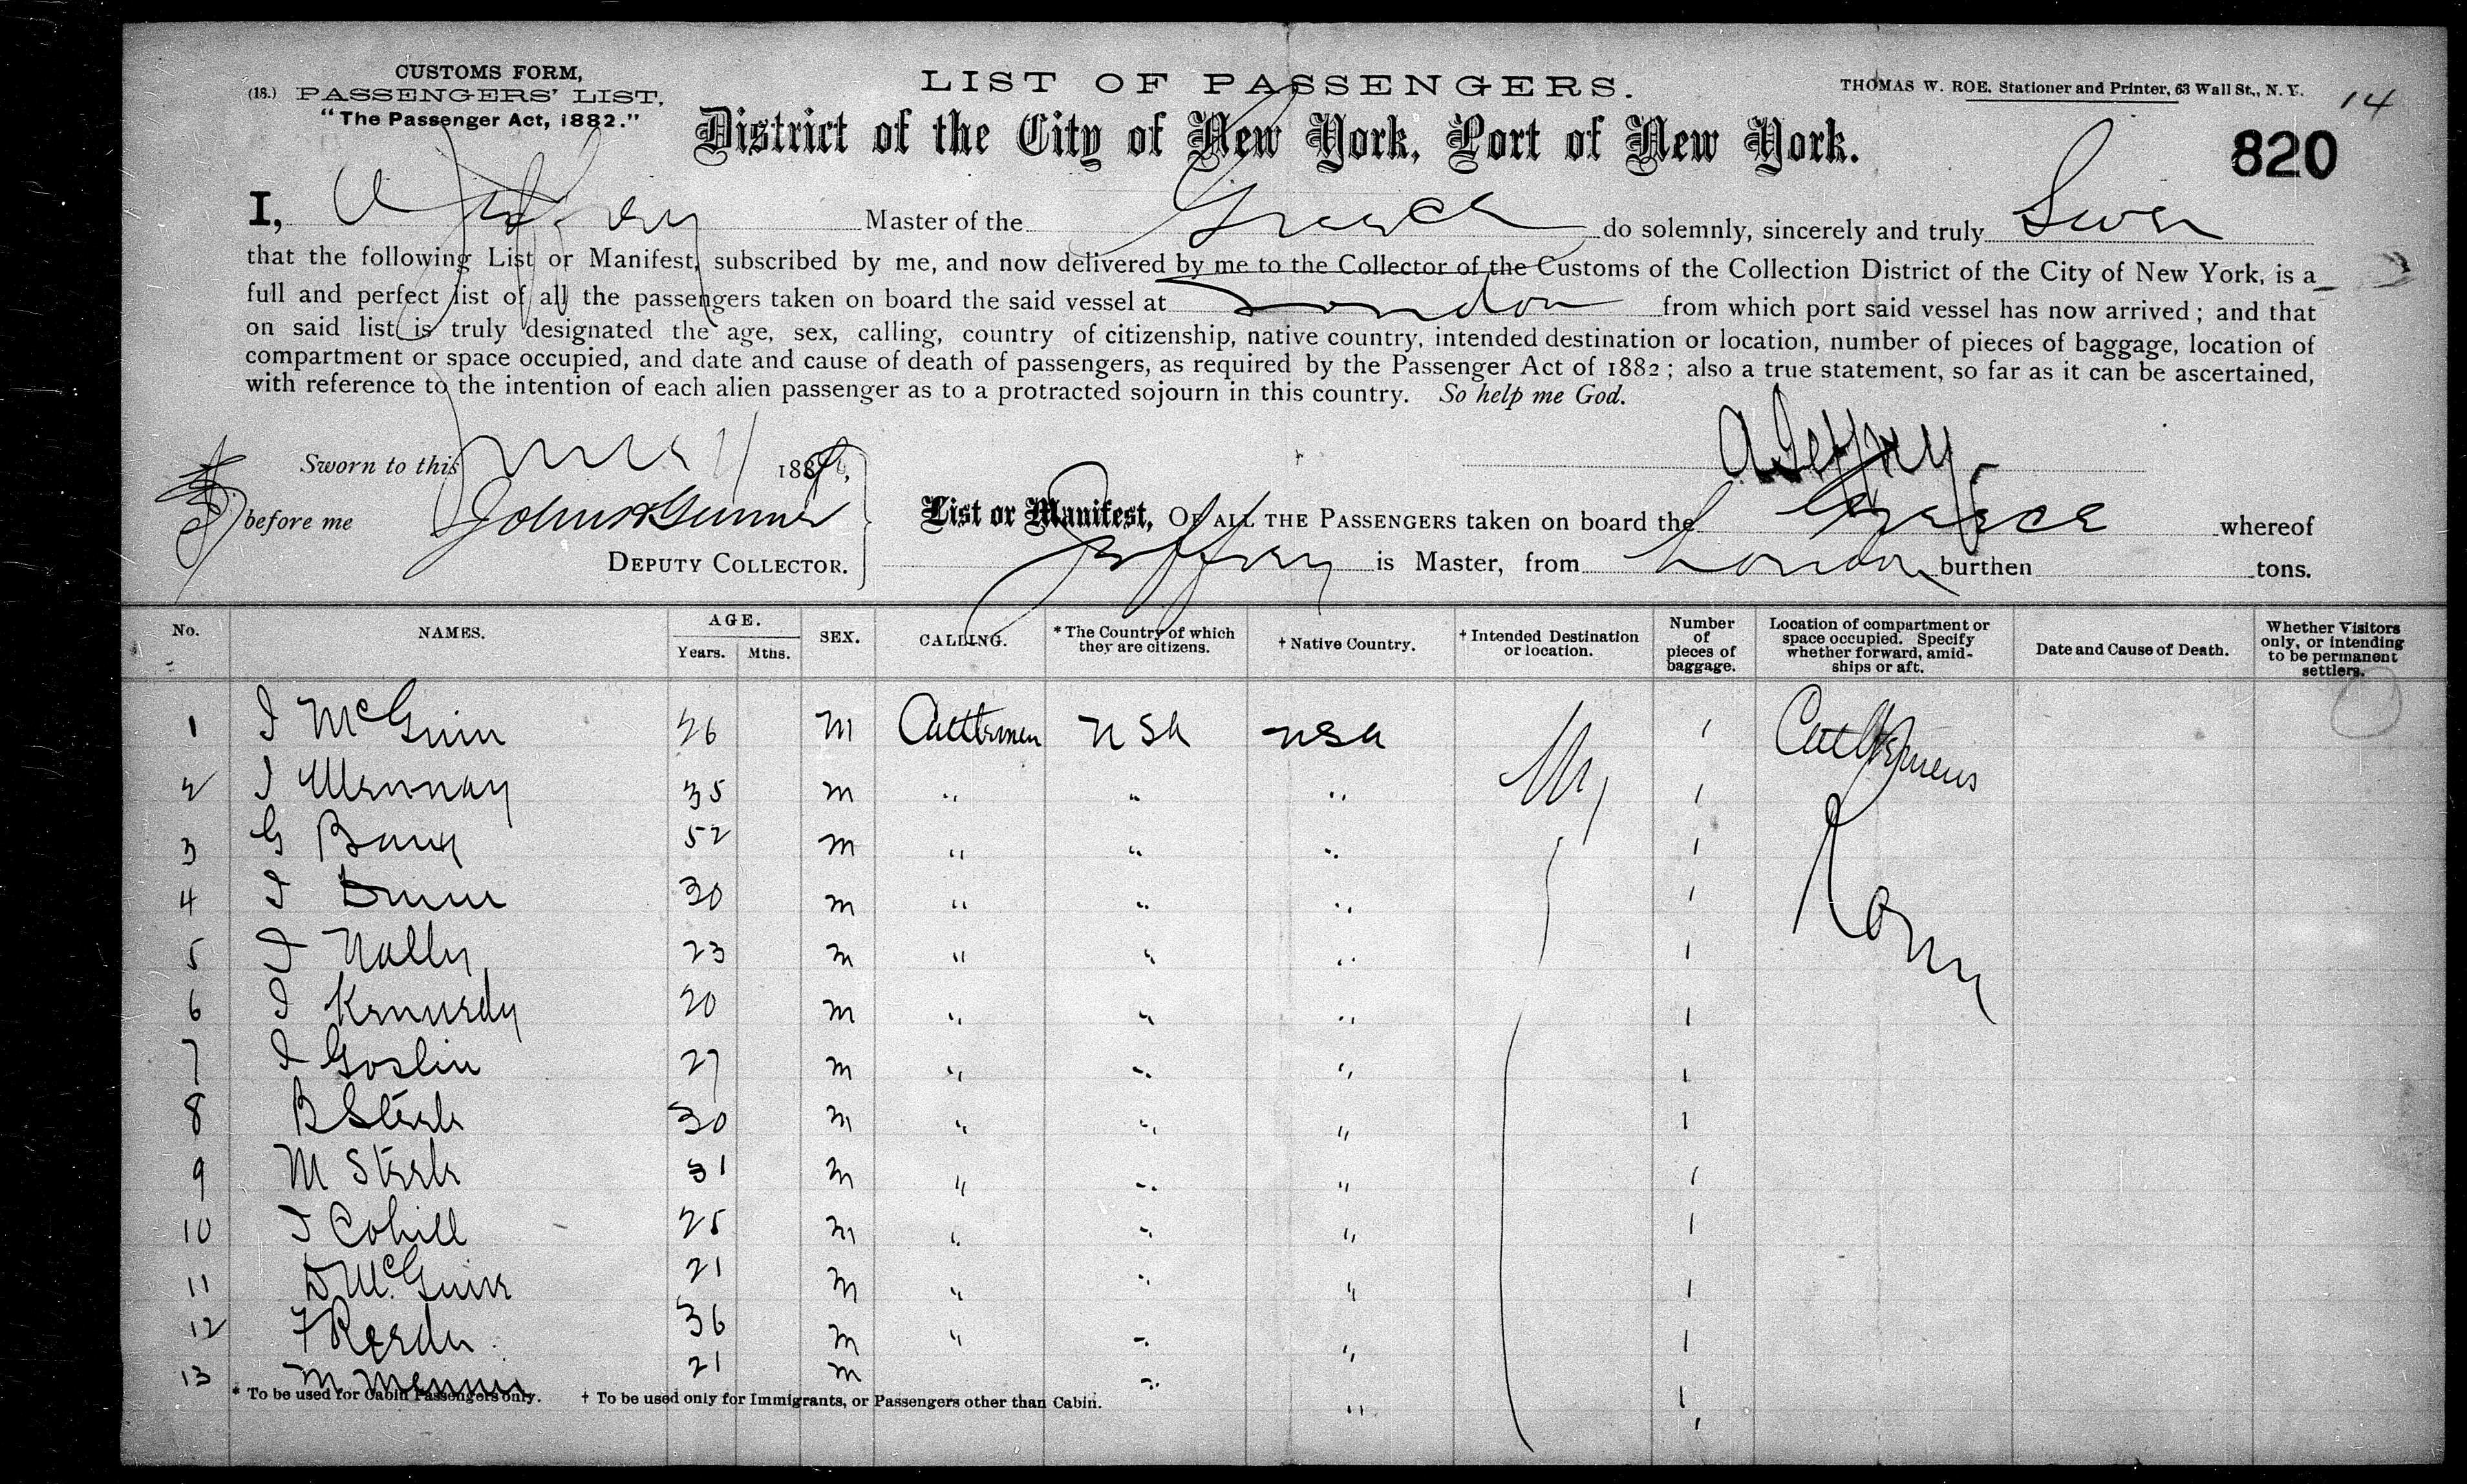 CUSTOMS FORM,
(18.) PASSENGERS' LIST,
"The Passenger Act, 1882."
LIST OF PASSENGERS.
THOMAS W. ROE, Stationer and Printer, 63 Wall St., N. Y.
14
District of the City of New York, Port of New York.
820
I, A Jeffrey Master of the Greece do solemnly, sincerely and truly Swear
that the following List or Manifest, subscribed by me, and now delivered by me to the Collector of the Customs of the Collection District of the City of New York, is a
full and perfect list of all the passengers taken on board the said vessel at London from which port said vessel has now arrived; and that
on said list is truly designated the age, sex, calling, country of citizenship, native country, intended destination or location, number of pieces of baggage, location of
compartment or space occupied, and date and cause of death of passengers, as required by the Passenger Act of 1882; also a true statement, so far as it can be ascertained,
with reference to the intention of each alien passenger as to a protracted sojourn in this country. So help me God.
A Jeffrey
Sworn to this June 11 188
before me John Gunner
DEPUTY COLLECTOR.
List or Manifest, OF ALL THE PASSENGERS taken on board the Greece whereof
Jeffrey is Master, from London burthen tons.
No. NAMES. AGE. Years. Mths. SEX. CALLING. * The Country of which they are citizens. † Native Country. † Intended Destination or location. Number of pieces of baggage. Location of compartment or space occupied. Specify whether forward, amidships or aft. Date and Cause of Death. Whether Visitors only, or intending to be permanent settlers.
1 J McGuin 26 M Cattlemen USA USA NY 1 Cattlemens Room
2 J 35 M " " " 1
3 G 52 M " " " 1
4 J 30 M " " " 1
5 J Nally 23 M " " " 1
6 J Kennedy 20 M " " " 1
7 J Goslin 27 M " " " 1
8 B Steele 30 M " " " 1
9 M Steele 31 M " " " 1
10 J Cohill 25 M " " " 1
11 D McGuire 21 M " " " 1
12 F 36 M " " " 1
13 M 21 M " " 1
* To be used for Cabin Passengers only. † To be used only for Immigrants, or Passengers other than Cabin.